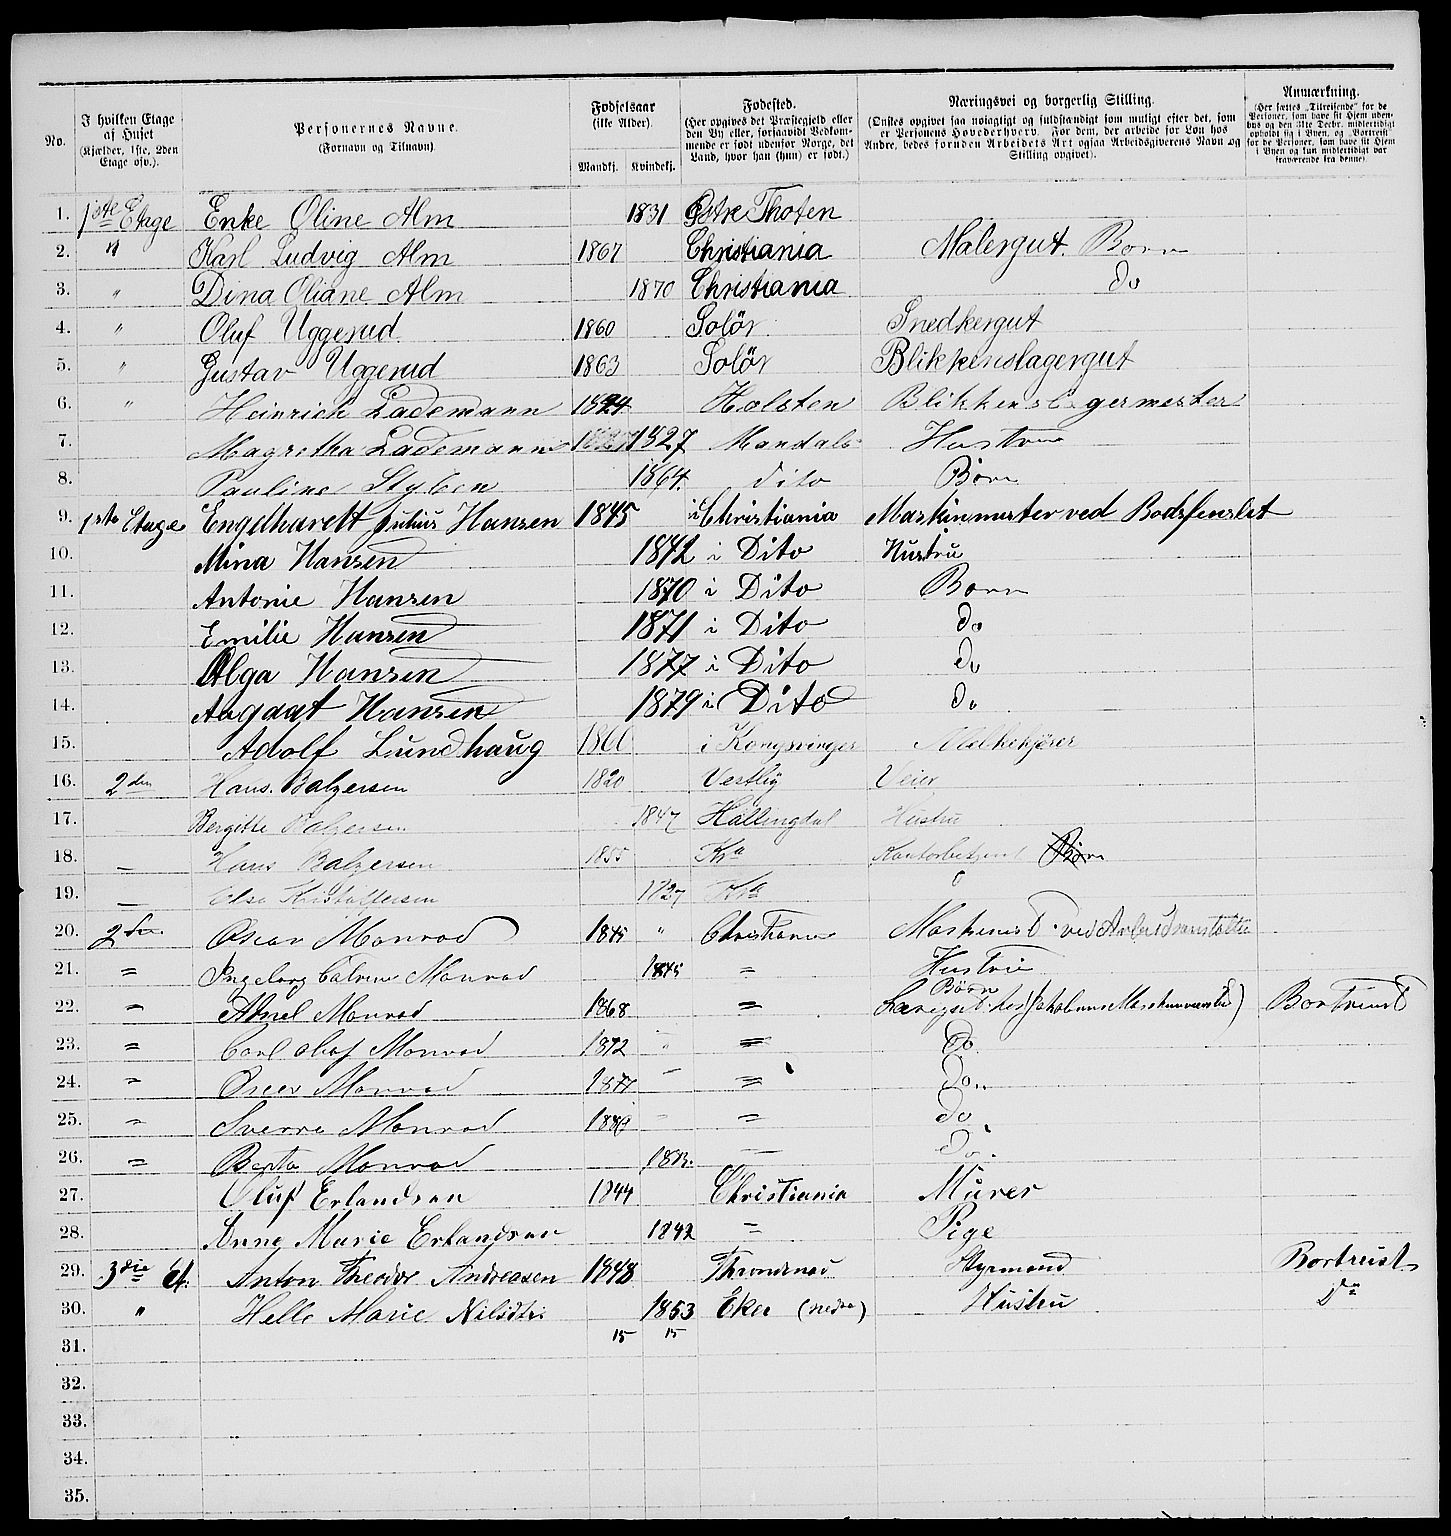 No.
I hvilken Etage af Huset (Kjælder, 1ste, 2den Etage osv.).
Personernes Navne. (Fornavn og Tilnavn).
Fødselsaar (ikke Alder). Mandkj. Kvindekj.
Fødested. (Her opgives det Præstegjeld eller den By eller, forsaavidt Vedkommende er født udenfor Norge, det Land, hvor han (hun) er født.)
Næringsvei og borgerlig Stilling. (Ønskes opgivet saa nøiagtigt og fuldstændigt som muligt efter det, som er Personens Hovederhverv. For dem, der arbeide for Løn hos Andre, bedes foruden Arbeidets Art ogsaa Arbeidsgiverens Navn og Stilling opgivet).
Anmærkning. (Her sættes „Tilreisende" for de Personer, som have sit Hjem udenbys og den 31te Decbr. midlertidigt opholdt sig i Byen, og „Bortreist" for de Personer, som have sit Hjem i Byen og kun midlertidigt var fraværende fra denne).
1. 1ste Etage Enke Oline Alm 1831 Østre Thoten
2. " Karl Ludvig Alm 1867 Christiania Malergut. Børn
3. " Dina Oliane Alm 1870 Christiania do
4. " Oluf Uggerud 1860 Solör Snedkergut
5. " Gustav Uggerud 1863 Solör Blikkenslagergut
6. " Heinrich Lademann 1824 Holsten Blikkenslagermester
7. Magretha Lademann 1827 1827 Mandal Hustru
8. Pauline 1864. dito Børn
9. 1ste Etage Engelharett Julius Hansen 1845 i Christiania Maskinmester ved Bodsfenslet
10. Mina Hansen 1842 i Dito Hustru
11. Antonie Hansen 1870 i Dito Børn
12. Emilie Hansen 1871 i Dito do
13. Olga Hansen 1877 i Dito do
14. Aagaat Hansen 1879 i Dito do
15. Adolf Lundhaug 1860 i Kongsvinger Melkekjører
16. 2den Hans. Balzersen 1820 Vestby Veier
17. Bergitte Balzersen 1847 Hallingdal Hustru
18. — Hans Balzersen 1855 Kra Børn
19. — Kristoffersen 1827 Kra
20. 2den Oscar Monrad 1845 " Christiania Maskinist ved
21. = Ingeborg Monrad 1845 = Hustru
22. = Monrad 1868 = Børn Bortreist
23. = Carl Olaf Monrad 1872 " = do
24. = Oscar Monrad 1877 " = Do
25. = Sverre Monrad 1880 " = do
26. = Monrad — do
27. Oluf Erlandsen 1844 Christiania Murer
28. Anne Marie Erlandsen 1842 = Pige
29. 3die Et. Anton Theodor Andreasen 1848 Throndenæs Styrmand Bortreist
30. " Helle Marie Nilsdtr 1853 Eker (nedre) Hustru Do
15 15
31.
32.
33.
34.
35.